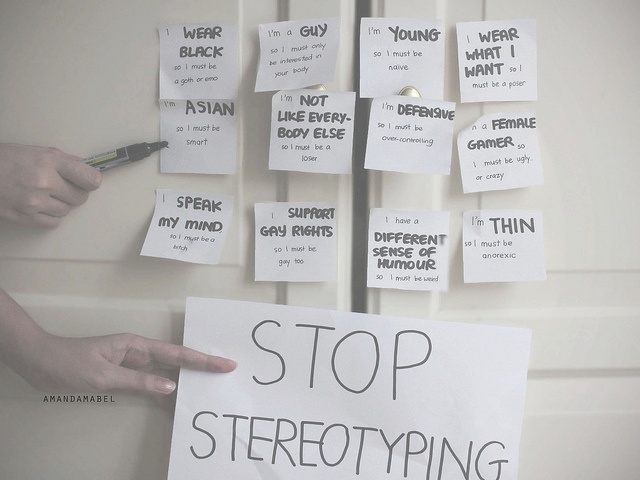 I WEAR
BLACK
so I must be
a goth or emo
I'm a GUY
so I must only
be interested in
your body
I'm YOUNG
so I must be
naive
I WEAR
WHAT I
WANT so I
must be a poser
I'm ASIAN
so I must be
smart
I'm NOT
LIKE EVERY-
BODY ELSE
so I must be a
loser
I'm DEFENSIVE
so I must be
over-controlling
a FEMALE
GAMER so
I must be ugly
or crazy
I SPEAK
MY MIND
so I must be a
bitch
I SUPPORT
GAY RIGHTS
so I must be
gay too
I have a
DIFFERENT
SENSE OF
HUMOUR
so I must be weird
I'm THIN
so I must be
anorexic
STOP
STEREOTYPING
AMANDAMABEL